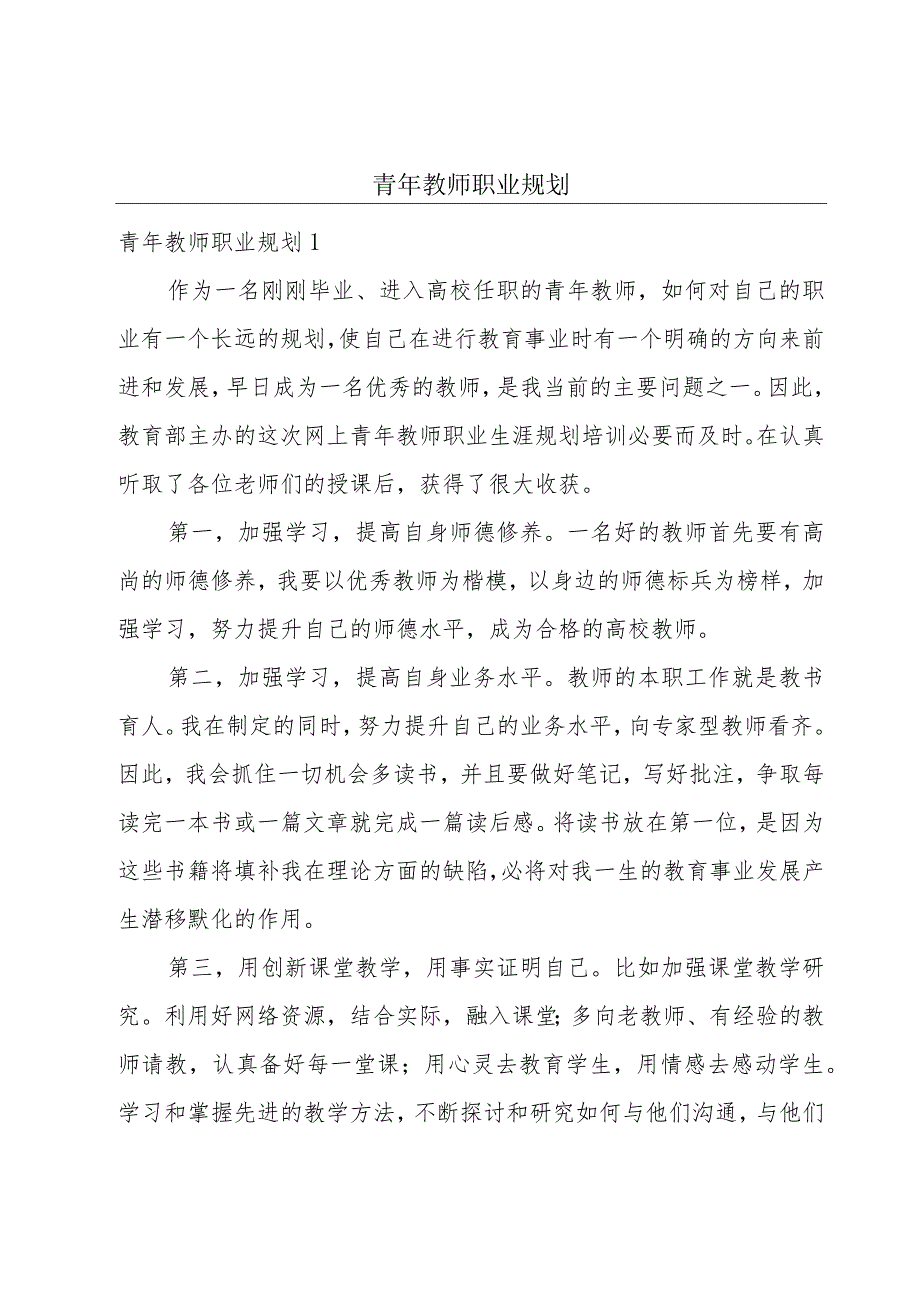 青年教师职业规划
青年教师职业规划1
作为一名刚刚毕业、进入高校任职的青年教师，如何对自己的职
业有一个长远的规划，使自己在进行教育事业时有一个明确的方向来前
进和发展，早日成为一名优秀的教师，是我当前的主要问题之一。因此，
教育部主办的这次网上青年教师职业生涯规划培训必要而及时。在认真
听取了各位老师们的授课后，获得了很大收获。
第一，加强学习，提高自身师德修养。一名好的教师首先要有高
尚的师德修养，我要以优秀教师为楷模，以身边的师德标兵为榜样，加
强学习，努力提升自己的师德水平，成为合格的高校教师。
第二，加强学习，提高自身业务水平。教师的本职工作就是教书
育人。我在制定的同时，努力提升自己的业务水平，向专家型教师看齐。
因此，我会抓住一切机会多读书，并且要做好笔记，写好批注，争取每
读完一本书或一篇文章就完成一篇读后感。将读书放在第一位，是因为
这些书籍将填补我在理论方面的缺陷，必将对我一生的教育事业发展产
生潜移默化的作用。
第三，用创新课堂教学，用事实证明自己。比如加强课堂教学研
究。利用好网络资源，结合实际，融入课堂；多向老教师、有经验的教
师请教，认真备好每一堂课；用心灵去教育学生，用情感去感动学生。
学习和掌握先进的教学方法，不断探讨和研究如何与他们沟通，与他们